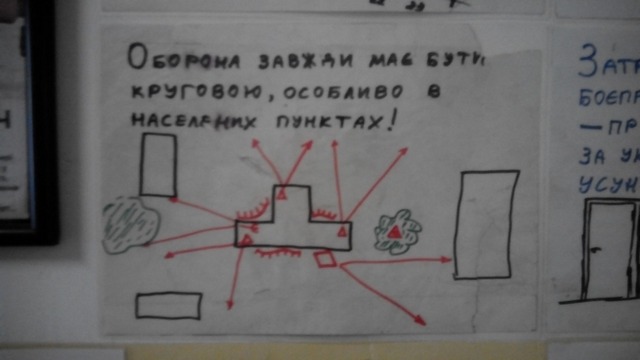 Оборона завжди має бути
круговою, особливо в
населених пунктах!
Затр
боєпр
— пр
за ук
усун